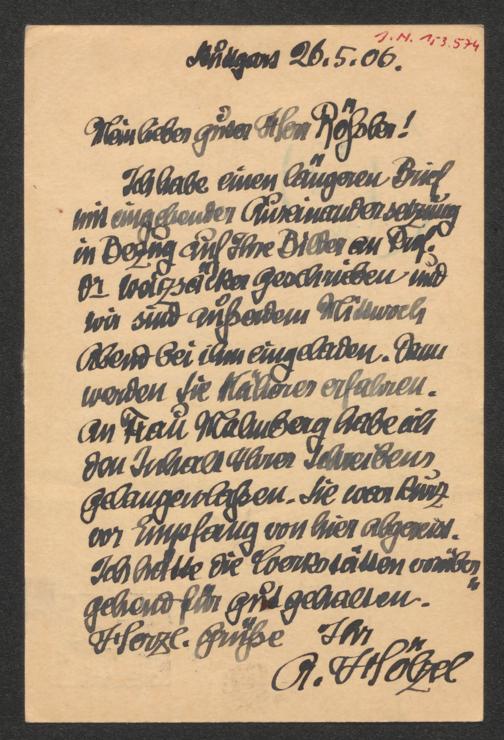 J.N. 153.574
Stuttgart 26.5.06.
Mein lieber guter Herr Rößler!
Ich habe einen längeren Brief
mit eingehender Auseinandersetzung
in Bezug auf Ihre Bilder an Prof.
Dr Waizsäcker geschrieben und
wir sind außerdem Mittwoch
Abend bei ihm eingeladen. Dann
werden Sie Näheres erfahren.
An Frau Malmberg habe ich
den Inhalt Ihres Schreibens
gelangen laßen. Sie war kurz
vor Empfang von hier abgereist.
Ich hätte die Werkstätten vorüber
gehend für gut gehalten.
Herzl. Grüße Ihr
A. Hölzel